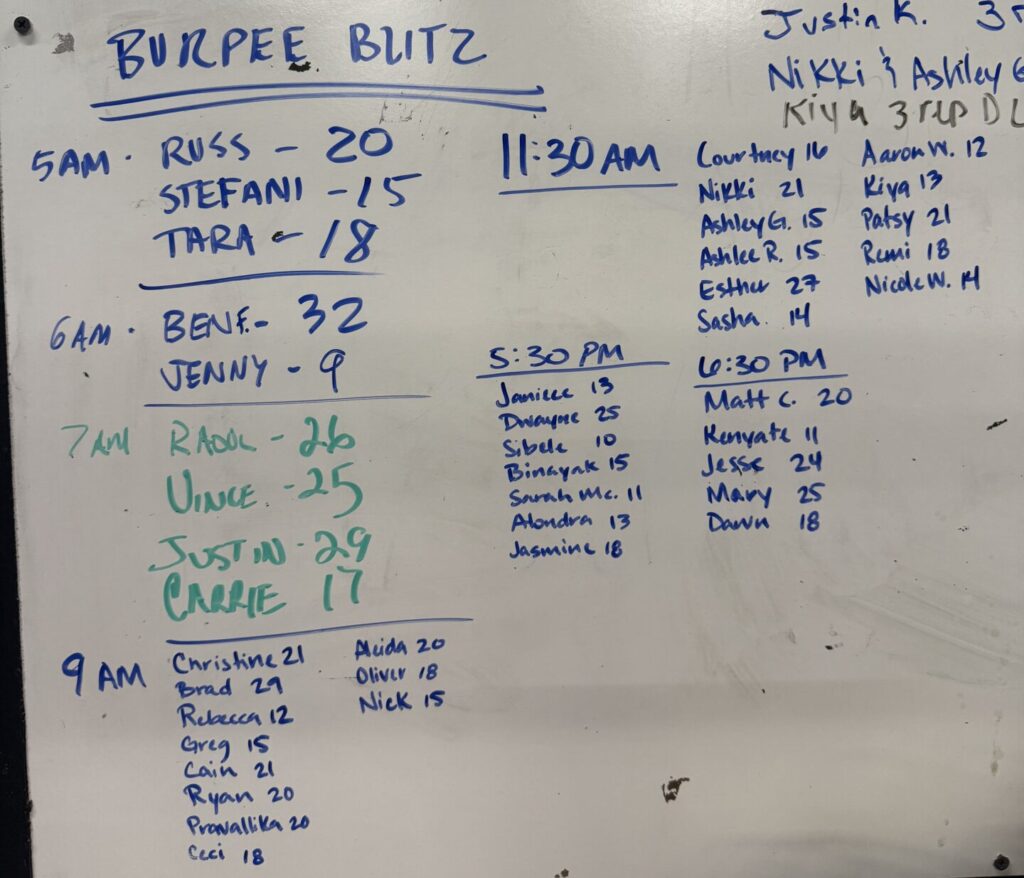 BURPEE BLITZ
Justin K. 3
Nikki & Ashley G
Kiya 3 rep DL
5AM. RUSS - 20
STEFANI - 15
TARA - 18
6AM. BEN F. - 32
JENNY - 9
7AM RAOUL - 26
VINCE. - 25
JUSTIN - 29
CARRIE 17
9 AM Christine 21
Brad 29
Rebecca 12
Greg 15
Cain 21
Ryan 20
Pravallika 20
Ceci 18
Aleida 20
Oliver 18
Nick 15
11:30 AM
Courtney 16
Nikki 21
Ashley G. 15
Ashlee R. 15
Esther 27
Sasha. 14
Aaron W. 12
Kiya 13
Patsy 21
Remi 18
Nicole W. 14
5:30 PM
Janiece 13
Dwayne 25
Sibele 10
Binayak 15
Sarah Mc. 11
Alondra 13
Jasmine 18
6:30 PM
Matt C. 20
Kenyate 11
Jesse 24
Mary 25
Dawn 18